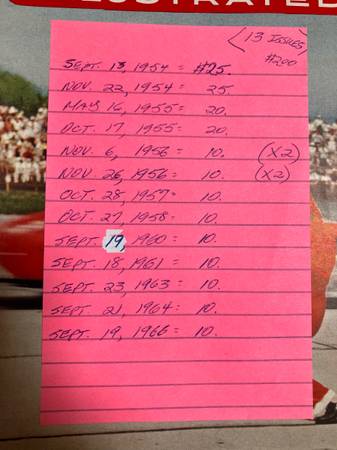 LUSTRATED
(13 ISSUES)
$200
SEPT. 13, 1954 = $25.
NOV. 22, 1954 = 25.
MAY 16, 1955 = 20.
OCT. 17, 1955 = 20.
NOV. 6, 1956 = 10. (X2)
NOV. 26, 1956 = 10. (X2)
OCT. 28, 1957 = 10.
OCT. 27, 1958 = 10.
SEPT. 19, 1960 = 10.
SEPT. 18, 1961 = 10.
SEPT. 23, 1963 = 10.
SEPT. 21, 1964 = 10.
SEPT. 19, 1966 = 10.